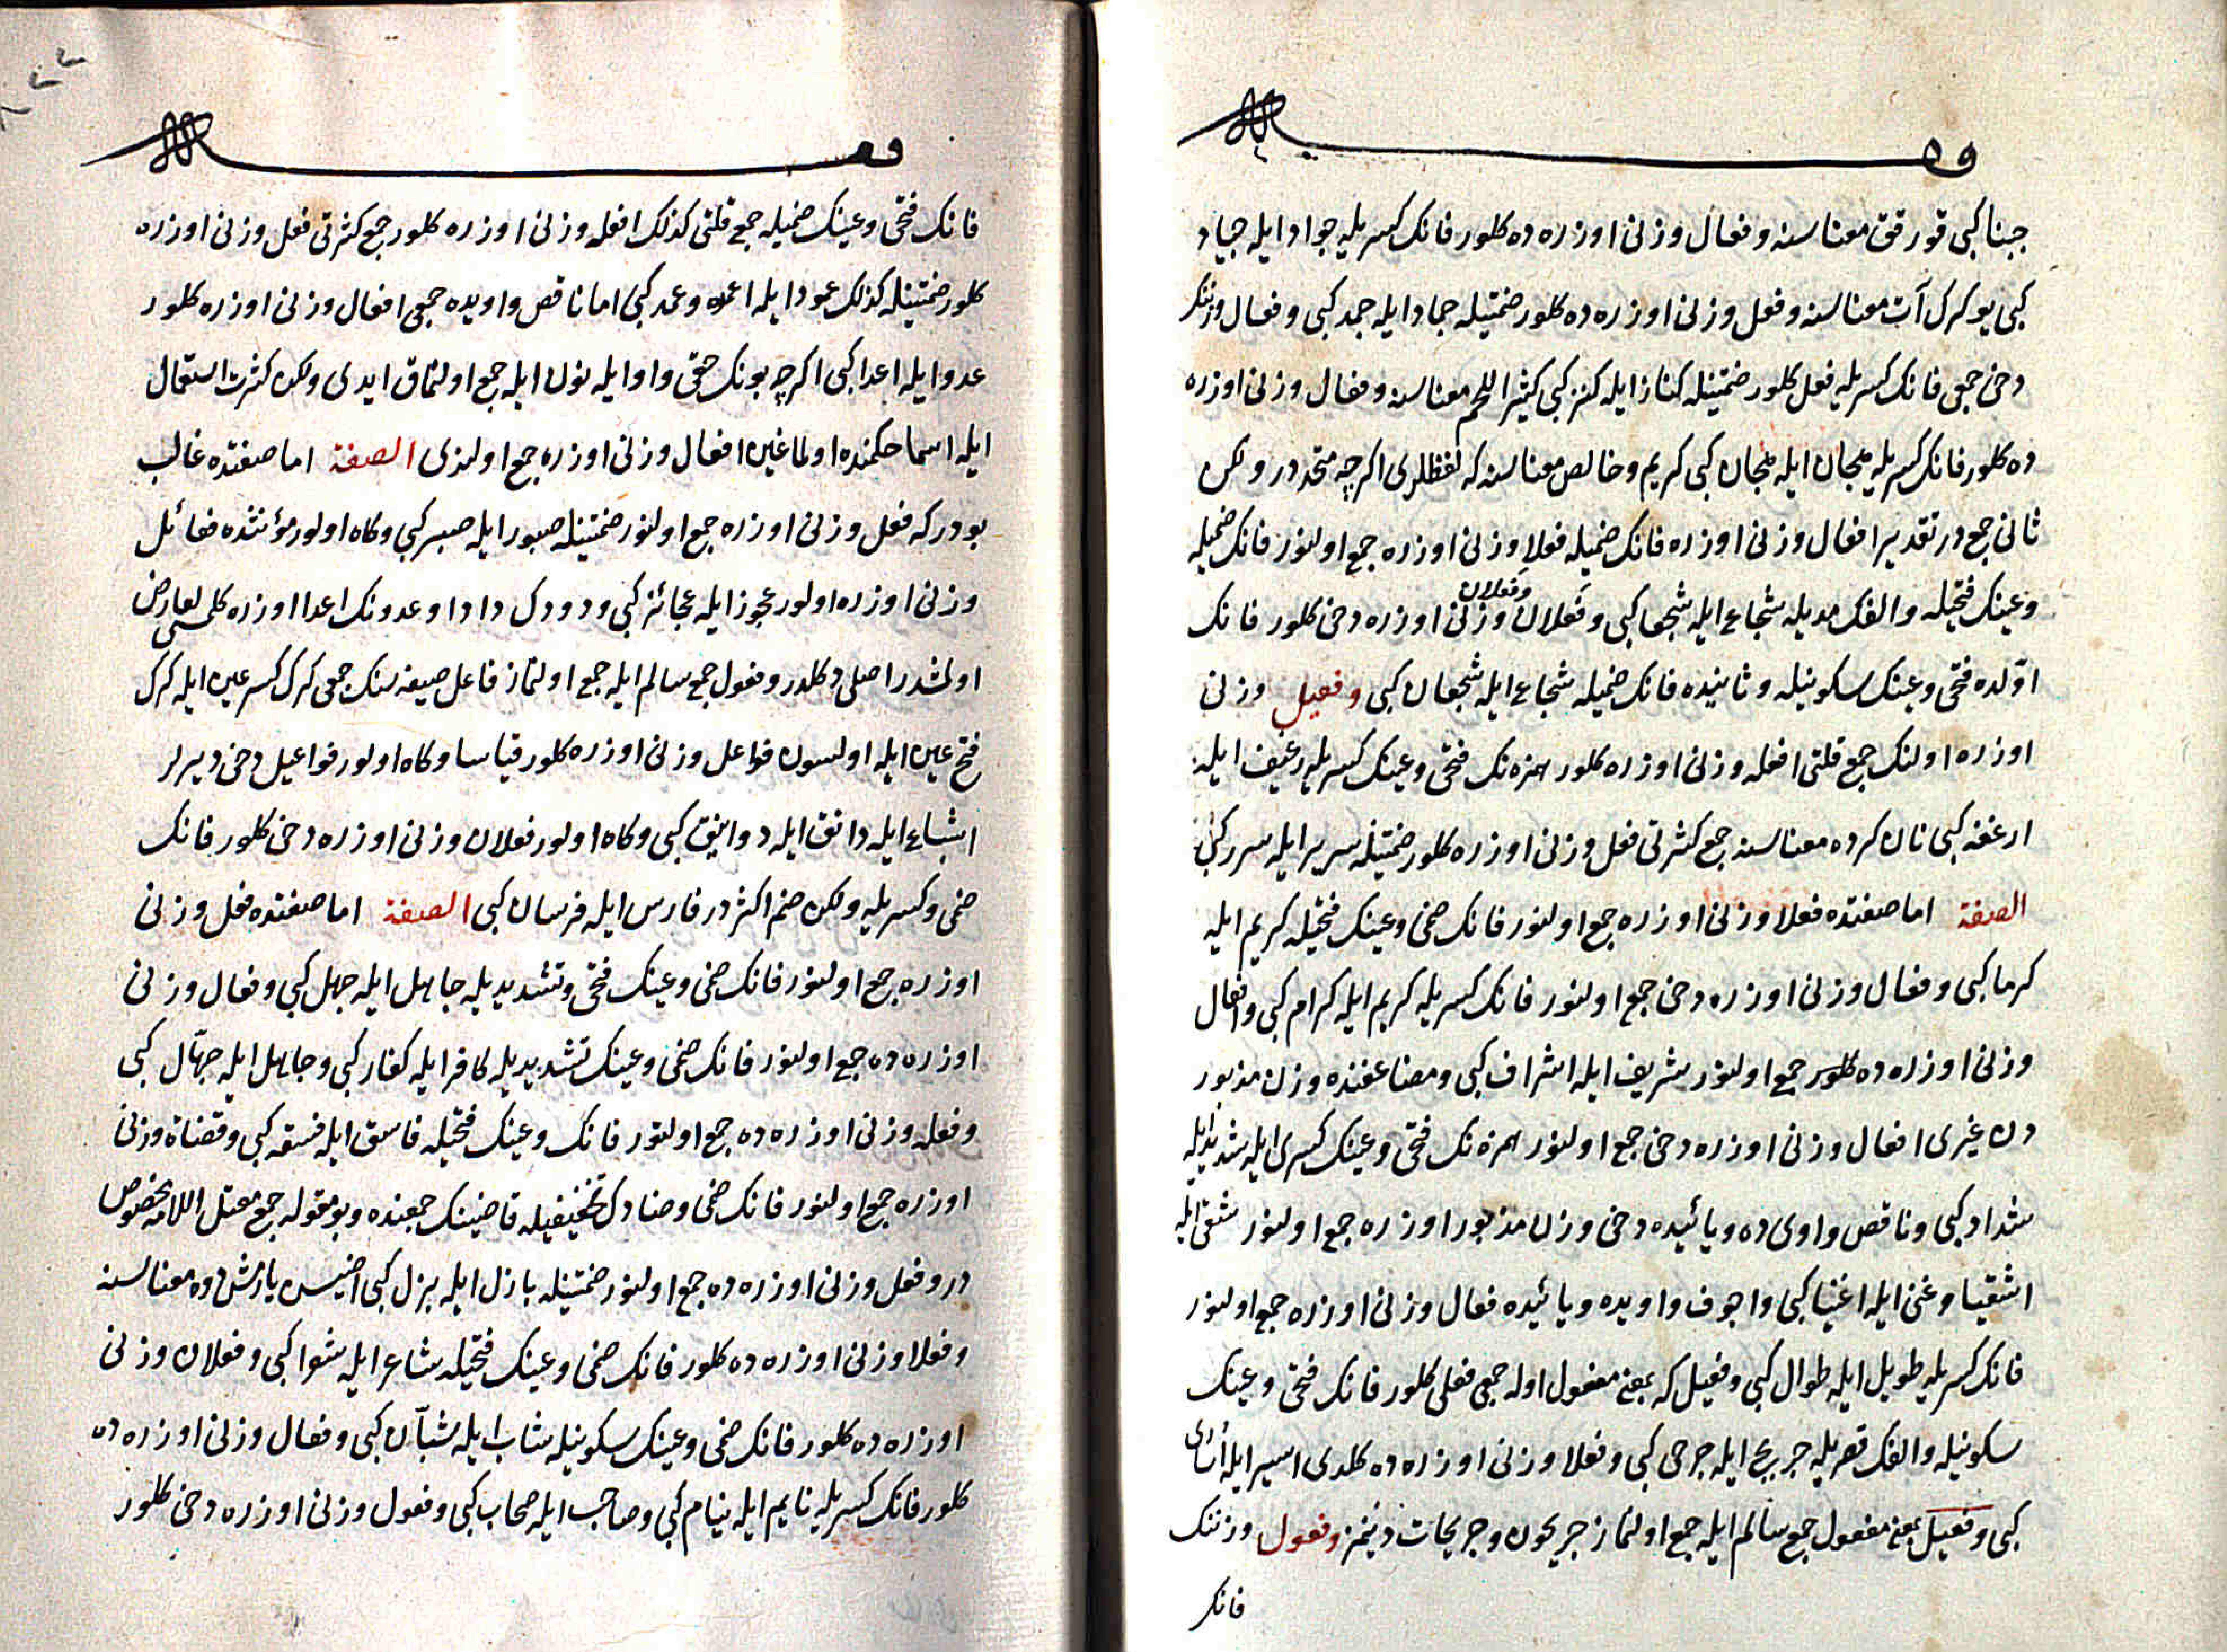 جبنا كبى قورقق معناسنه و فعال وزنى اوزره ده كلور فانك كسريله جواد ايله جياد
كبى يوكرك آت معناسنه و فعل وزنى اوزره ده كلور ضمتيله جماد ايله جمد كبى و فعال وزننك
دخى جمعى فانك كسريله فعل كلور ضمتينله كناز ايله كنز كبى كثير اللحم معناسنه و فعال وزنى اوزره
ده كلور فانك كسريله هجان ايله هجان كبى كريم و خالص معناسنه كه لفظلرى اكرچه متحددر ولكن
ثانى جمع در تقديرا فعال وزنى اوزره فانك ضميله فعلا وزنى اوزره جمع اولنور فانك ضميله
وعينك فتحيله والفك مديله شجاع ايله شجعا كبى و فعلان وفعلان وزنى اوزره دخى كلور فانك
اولده فتحى وعينك سكونيله وثانيده فانك ضميله شجاع ايله شجعان كبى وفعيل وزنى
اوزره اولنك جمع قلتى افعله وزنى اوزره كلور همزه نك فتحى وعينك كسريله رغيف ايله
ارغفه كبى نان كرده معناسنه جمع كثرتى فعل وزنى اوزره كلور ضمتينله سرير ايله سرر كبى
الصفة اما صفتده فعلا وزنى اوزره جمع اولنور فانك ضمى وعينك فتحيله كريم ايله
كرما كبى و فعال وزنى اوزره دخى جمع اولنور فانك كسريله كريم ايله كرام كبى وافعال
وزنى اوزره ده كلور جمع اولنور شريف ايله اشراف كبى ومضاعفنده وزن مذبور
دن غيرى افعال وزنى اوزره دخى جمع اولنور همزه نك فتحى وعينك كسرى ايله شديد ايله
شداد كبى وناقص واوى ده ويائيده دخى وزن مذبور اوزره جمع اولنور شقى ايله
اشقيا وغنى ايله اغنيا كبى واجوف واويده ويائيده فعال وزنى اوزره جمع اولنور
فانك كسريله طويل ايله طوال كبى وفعيل كه بمعنى مفعول اوله جمعى فعلى كلور فانك فتحى وعينك
سكونيله والفك قصريله جريح ايله جرحى كبى وفعلا وزنى اوزره ده كلدى اسير ايله اسارى
كبى وفعيل بمعنى مفعول جمع سالم ايله جمع اولنماز جريحون وجريحات دينمز وفعول وزننك
فانك
فانك فتحى وعينك ضميله جمع قلتى كذلك افعله وزنى اوزره كلور جمع كثرتى فعل وزنى اوزره
كلور ضمتينله كذلك عمود ايله اعمده وعمد كبى اما ناقص واويده جمعى افعال وزنى اوزره كلور
عدو ايله اعدا كبى اكرچه بونك حقى واو ايله نون ايله جمع اولنماق ايدى ولكن كثرت استعمال
ايله اسما حكمنده اولماغين افعال وزنى اوزره جمع اولندى الصفة اما صفتده غالب
بودر كه فعل وزنى اوزره جمع اولنور ضمتينله صبور ايله صبر كبى وكاه اولور مؤنثده فعائل
وزنى اوزره اولور عجوز ايله عجائز كبى و ودودك داودا وعدونك اعدا اوزره كلمسى لعارض
اولمشدر اصلى دكلدر وفعول جمع سالم ايله جمع اولنماز فاعل صيغه سنك جمعى كرك كسر عين ايله كرك
فتح عين ايله اولسون فواعل وزنى اوزره كلور قياسا وكاه اولور فواعيل دخى ديرلر
اشباع ايله دانق ايله دوانيق كبى وكاه اولور فعلان وزنى اوزره دخى كلور فانك
ضمى وكسريله ولكن ضم اكثر در فارس ايله فرسان كبى الصفة اما صفتده فعل وزنى
اوزره جمع اولنور فانك ضمى وعينك فتحى وتشديديله جاهل ايله جهل كبى وفعال وزنى
اوزره ده جمع اولنور فانك ضمى وعينك تشديديله كافر ايله كفار كبى وجاهل ايله جهّال كبى
وفعله وزنى اوزره ده جمع اولنور فانك وعينك فتحيله فاسق ايله فسقه كبى وقضاة وزنى
اوزره جمع اولنور فانك ضمى وضادك تخفيفيله قاضينك جمعنده وبومقوله جمع معتل اللامه مخصوص
در وفعل وزنى اوزره ده جمع اولنور ضمتينله بازل ايله بزل كبى ياريمش دوه معناسنه
وفعلا وزنى اوزره ده كلور فانك ضمى وعينك فتحيله شاعر ايله شعرا كبى وفعلان وزنى
اوزره ده كلور فانك ضمى وعينك سكونيله شاب ايله شبّان كبى وفعال وزنى اوزره ده
كلور فانك كسريله نايم ايله نيام كبى وصاحب ايله صحاب كبى وفعول وزنى اوزره دخى كلور